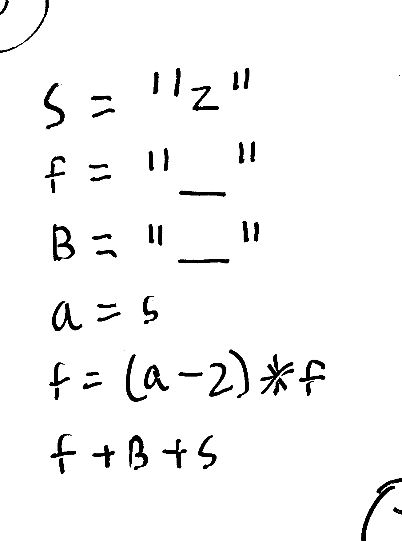 S = "z"
f = "__"
B = "__"
a = 5
f = (a-2)*f
f+B+S